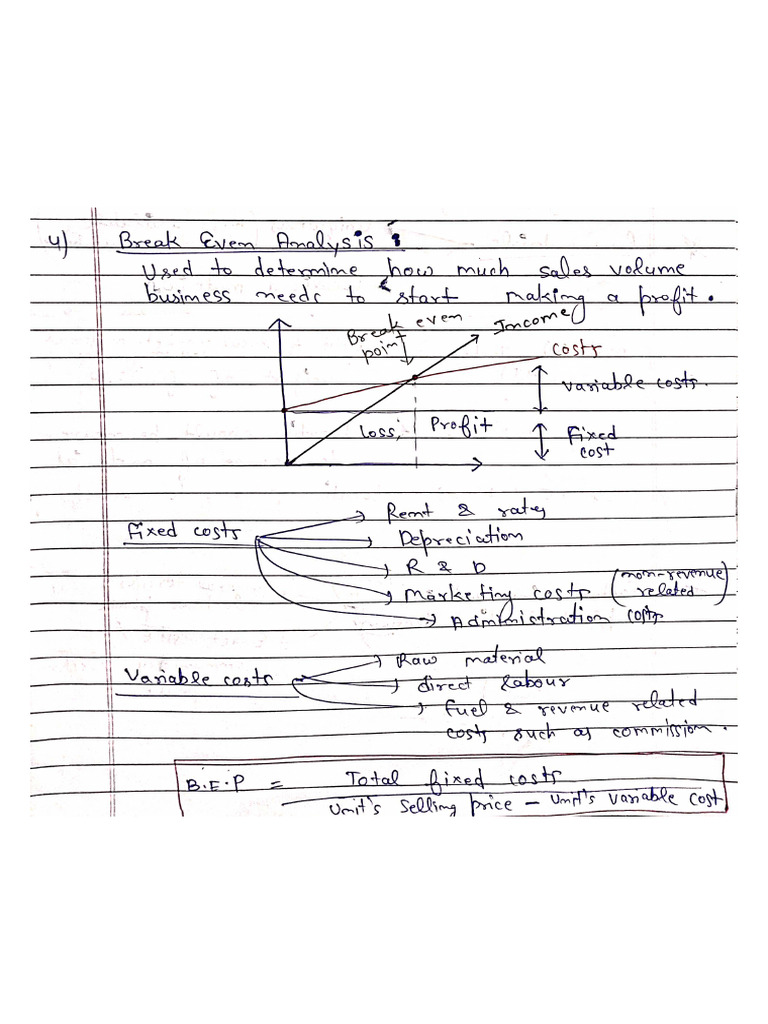 4) Break Even Analysis :
Used to determine how much sales volume
business needs to start making a profit.
Break even
point
Income
Costs
Variable costs.
Loss;
Profit
Fixed
cost
Fixed costs
Rent & rates
Depreciation
R & D
Marketing costs (non-revenue
related)
Administration costs
Variable costs
Raw material
direct labour
fuel & revenue related
costs such as commission.
B.E.P = Total fixed costs
Unit's selling price - Unit's variable cost